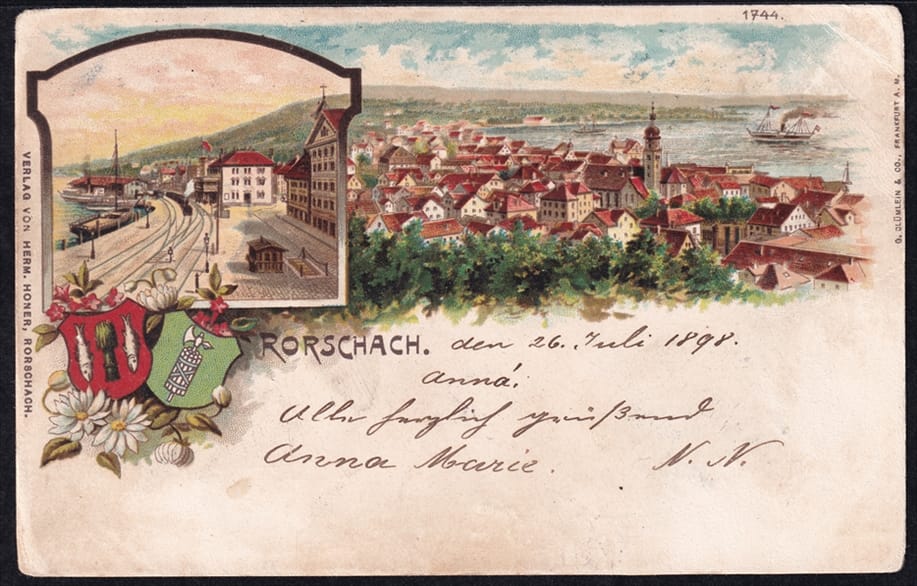 1744.
VERLAG VON HERM. HONER, RORSCHACH.
G. BLÜMLEIN & CO., FRANKFURT A. M.
RORSCHACH. den 26. Juli 1898.
Anna!
Alle herzlich grüßend
Anna Marie. N. N.